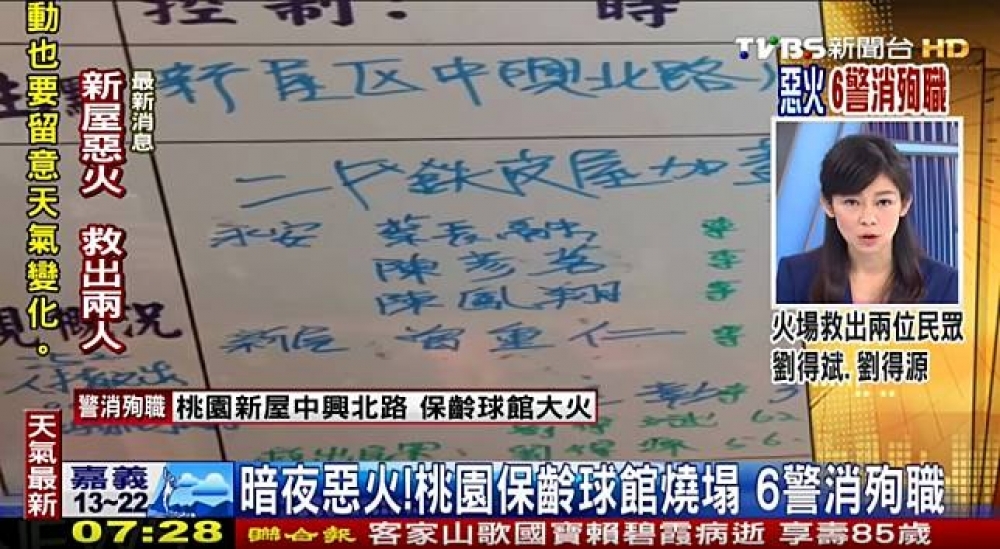 動也要留意天氣變化。
最新消息
新屋惡火 救出兩人
控制! 時
新屋区中興北路
二戶鉄皮屋加蓋
永安
陳彥茗
陳鳳翔
新屋 曾重仁
現概況
TVBS新聞台HD
惡火 6警消殉職
火場救出兩位民眾
劉得斌.劉得源
警消殉職 桃園新屋中興北路 保齡球館大火
天氣最新
嘉義
13~22
暗夜惡火!桃園保齡球館燒塌 6警消殉職
07:28 聯合報 客家山歌國寶賴碧霞病逝 享壽85歲